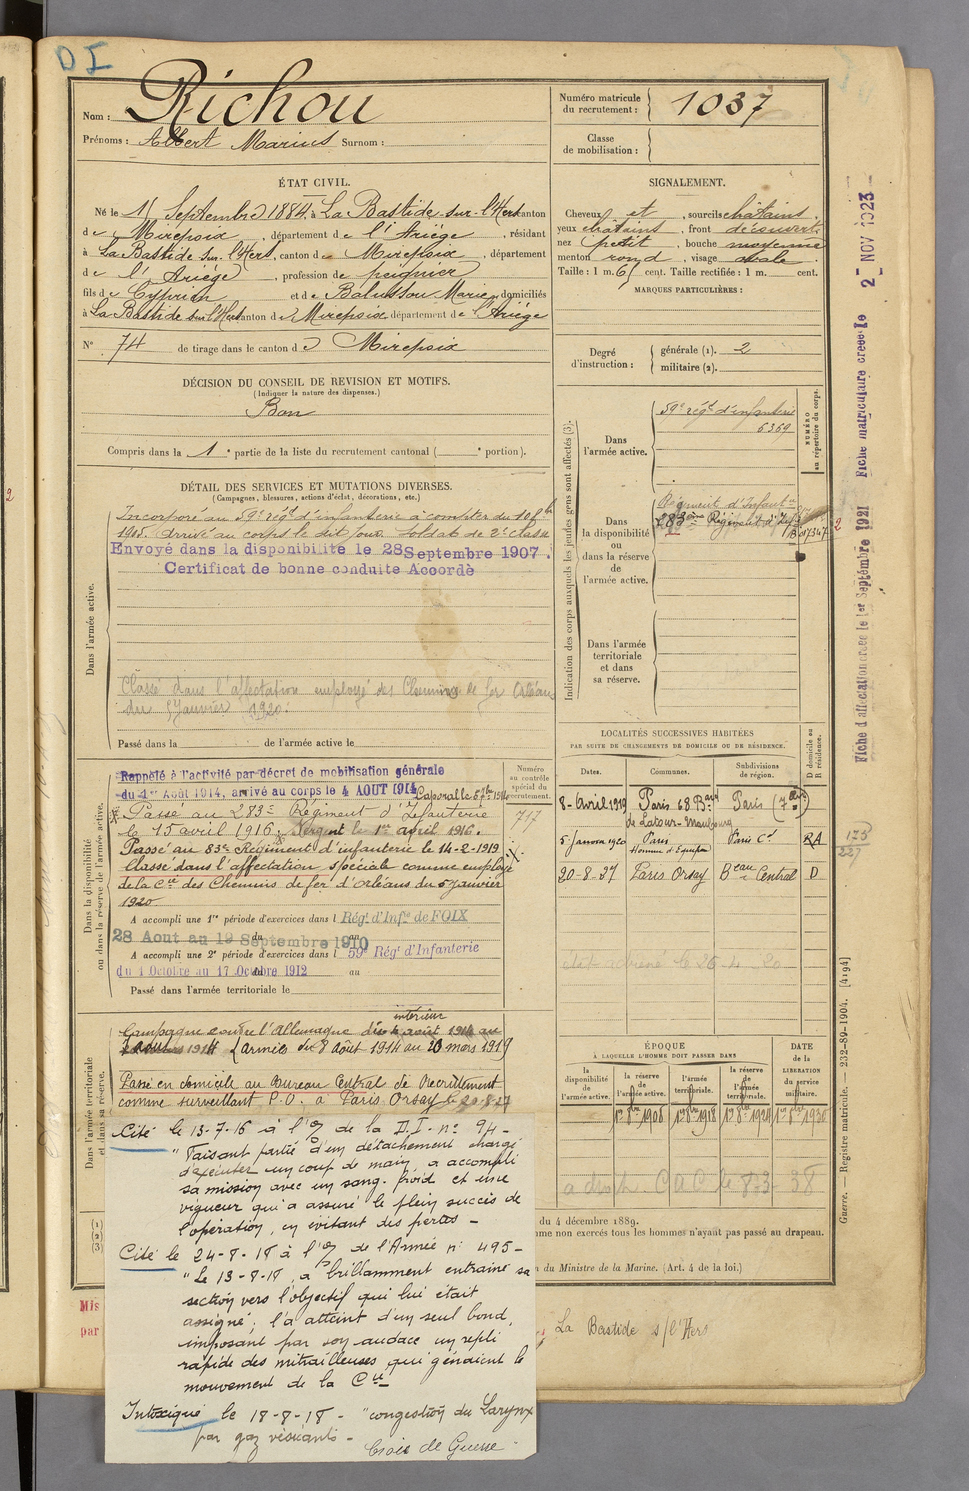 D I
Nom : Richou
Prénoms : Albert Marius Surnom :
Numéro matricule
du recrutement : 1037
Classe
de mobilisation :
ÉTAT CIVIL.
Né le 1 Septembre 1884, à La Bastide-sur-l'Hers canton
de Mirepoix, département de l'Ariège, résidant
à La Bastide sur l'Hers, canton de Mirepoix, département
de l'Ariège, profession de peignier
fils de Cyprien et de Balussou Marie, domiciliés
à La Bastide sur l'Hers canton de Mirepoix département de l'Ariège
N° 74 de tirage dans le canton de Mirepoix
SIGNALEMENT.
Cheveux et, sourcils châtains.
yeux châtains, front découvert
nez petit, bouche moyenne
menton rond, visage ovale.
Taille : 1 m. 61 cent. Taille rectifiée : 1 m. cent.
MARQUES PARTICULIÈRES :
Degré
d'instruction :
générale (1). 2
militaire (2).
DÉCISION DU CONSEIL DE REVISION ET MOTIFS.
(Indiquer la nature des dispenses.)
Bon
Compris dans la 1e partie de la liste du recrutement cantonal ( e portion).
DÉTAIL DES SERVICES ET MUTATIONS DIVERSES.
(Campagnes, blessures, actions d'éclat, décorations, etc.)
Dans l'armée active.
Incorporé au 59e régt d'infanterie à compter du 10 8bre
1905. Arrivé au corps le dit jour. Soldat de 2e classe
Envoyé dans la disponibilité le 28 Septembre 1907.
Certificat de bonne conduite Accordé
Classé dans l'affectation employé des Chemins de fer Orléans
du 5 Janvier 1920.
Passé dans la de l'armée active le
Indication des corps auxquels les jeunes gens sont affectés (3).
Dans
l'armée active.
59e régt d'infanterie
6369
NUMÉRO
au répertoire du corps.
Dans
la disponibilité
ou
dans la réserve
de
l'armée active.
Régiment d'Infant
283ème Régiment d'Inf
2
Dans l'armée
territoriale
et dans
sa réserve.
LOCALITÉS SUCCESSIVES HABITÉES
PAR SUITE DE CHANGEMENTS DE DOMICILE OU DE RÉSIDENCE.
Dates. Communes. Subdivisions
de région. D domicile ou
R résidence.
8-Avril 1919 Paris 68 Bard Paris (7
de Latour-Maubourg
5 Janvier 1920 Paris Paris Cl RA
20-8-37 Paris Orsay Beau Central D
Dans la disponibilité
ou dans la réserve de l'armée active.
Rappelé à l'activité par décret de mobilisation générale
du 1er Août 1914, arrivé au corps le 4 AOUT 1914 Caporal le
Passé au 283e Régiment d'Infanterie
le 15 avril 1916. Sergent le 1er avril 1916.
Passé au 83e Régiment d'infanterie le 14-2-1919
Classé dans l'affectation spéciale comme employé
de la Cie des Chemins de fer d'Orléans du 5 Janvier
1920
A accompli une 1re période d'exercices dans l Régt d'Infie de FOIX
28 Aout au 19 Septembre 1910
A accompli une 2e période d'exercices dans l 59e Régt d'Infanterie
du 1 Octobre au 17 Octobre 1912
Passé dans l'armée territoriale le
Numéro
au contrôle
spécial du
recrutement.
717
Dans l'armée territoriale
et dans sa réserve.
intérieur
Campagne contre l'Allemagne du 4 août 1914 au
7 août 1914 armée du 8 août 1914 au 20 mars 1919
Passé en domicile au Bureau Central de Recrutement
comme surveillant P.O. à Paris Orsay le 20-8-27
ÉPOQUE
À LAQUELLE L'HOMME DOIT PASSER DANS
DATE
de la
LIBÉRATION
du service
militaire.
la
disponibilité
de
l'armée active.
la réserve
de
l'armée active.
l'armée
territoriale.
la réserve
de
l'armée
territoriale.
1er 8bre 1908 1er 8bre 1918 1er 8bre 1924 1er 8bre 1930
Cité le 13-7-16 à l'O de la D.I. n° 94-
"Faisant partie d'un détachement chargé
d'exécuter un coup de main, a accompli
sa mission avec un sang-froid et une
vigueur qui a assuré le plein succès de
l'opération, en évitant des pertes -
Cité le 24-8-18 à l'O de l'Armée n° 495-
"Le 13-8-18, a brillamment entraîné sa
section vers l'objectif qui lui était
assigné; l'a atteint d'un seul bond,
imposant par son audace un repli
rapide des mitrailleuses qui gênaient le
mouvement de la Cie
Intoxiqué le 18-8-18 - "congestion du Larynx
par gaz vésicants -
Croix de Guerre
(1)
(2)
(3)
du 4 décembre 1889.
mme non exercés tous les hommes n'ayant pas passé au drapeau.
n du Ministre de la Marine. (Art. 4 de la loi.)
Mis
par
La Bastide s/l'Hers
Fiche d'affectation créée le 1er Septembre 1921 Fiche matriculaire créée le 2 NOV 1923
175
227
Guerre. — Registre matricule. — 232-89-1904. [4194]